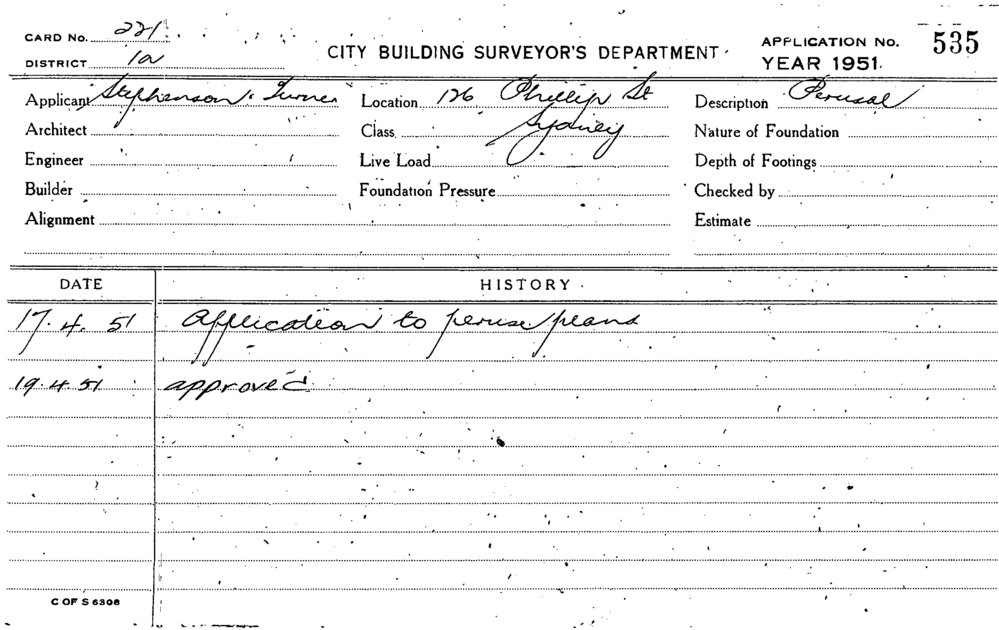 CARD No. 221
DISTRICT 1a
CITY BUILDING SURVEYOR'S DEPARTMENT
APPLICATION No. 535
YEAR 1951
Applicant Stephenson & Turner Location 126 Phillip St Description Perusal
Architect Class Sydney Nature of Foundation
Engineer Live Load Depth of Footings
Builder Foundation Pressure Checked by
Alignment Estimate
DATE HISTORY
17.4.51 Application to peruse plans
19.4.51 approved
C OF S 6306